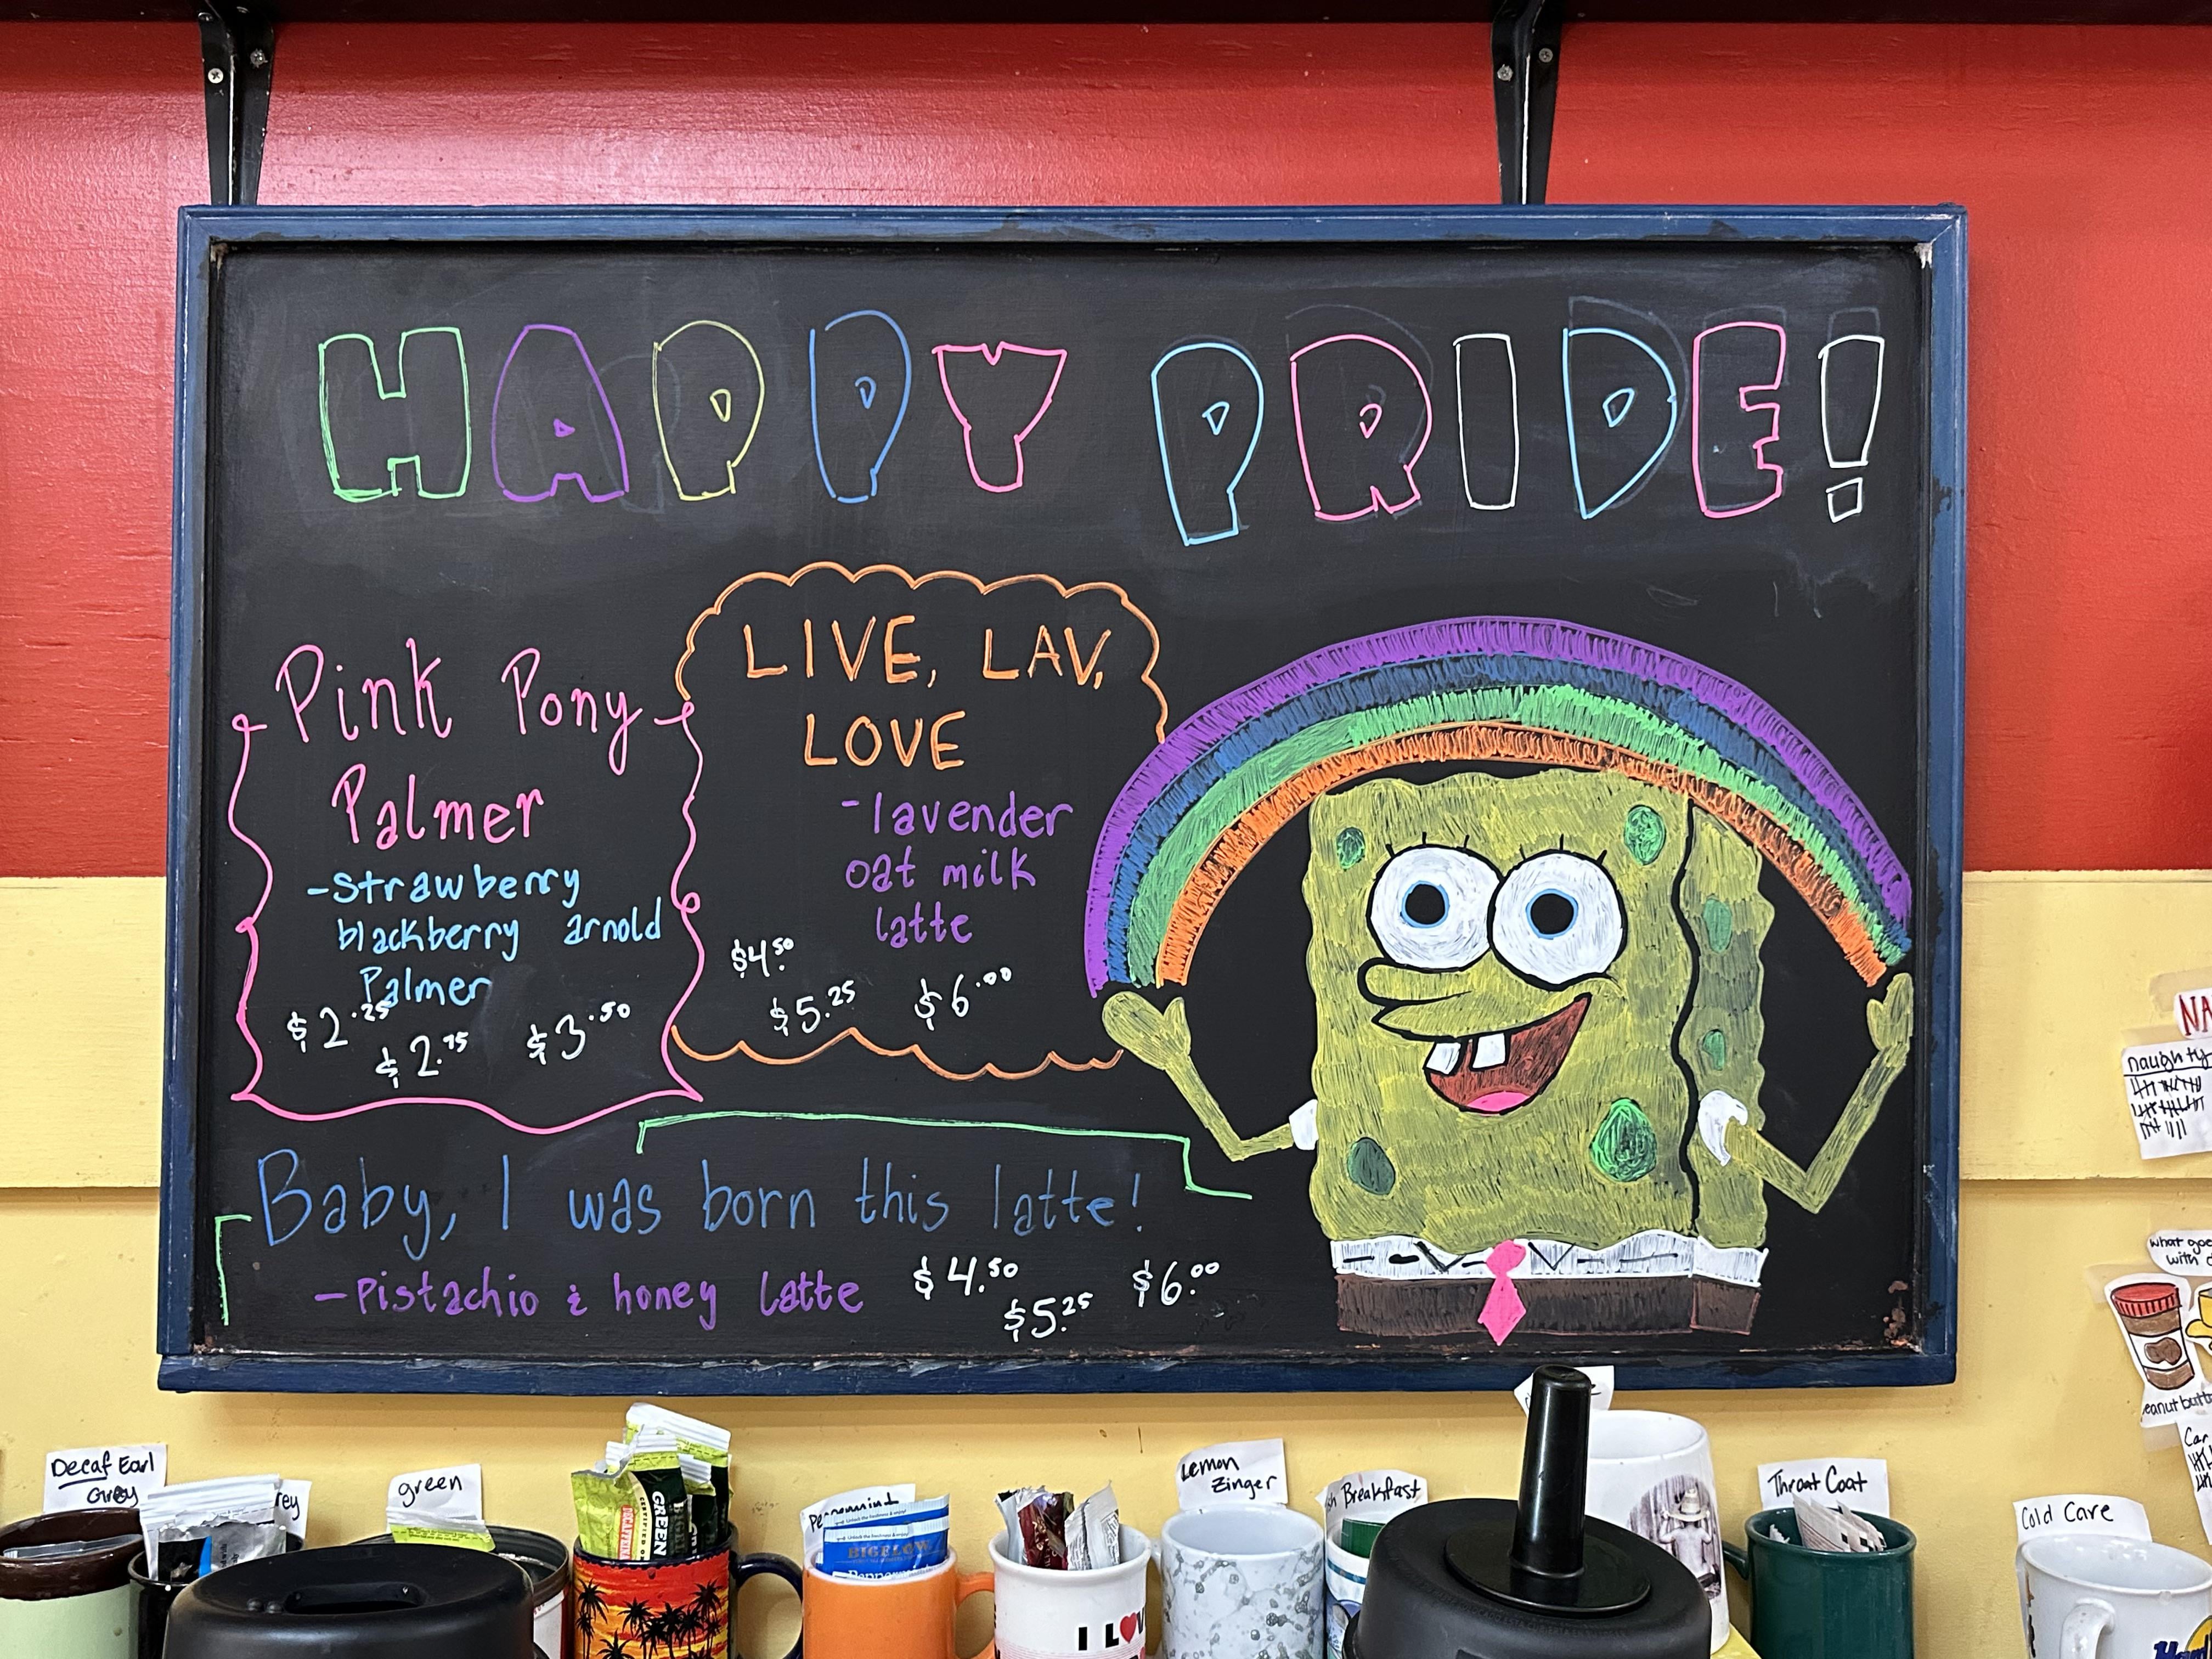 HAPPY PRIDE!
Pink Pony
Palmer
-strawberry
blackberry arnold
Palmer
$2.25
$2.75
$3.50
LIVE, LAV,
LOVE
-lavender
oat milk
latte
$4.50
$5.25
$6.00
Baby, I was born this latte!
-Pistachio & honey latte
$4.50
$5.25
$6.00
NA
naughty
what goe
with
eanut butt
Car
Decaf Earl
Grey
rey
green
GREEN
Peppermint
BIGELOW
Peppermi
I LOV
Lemon
Zinger
sh Breakfast
Throat Coat
Cold Care
Hard